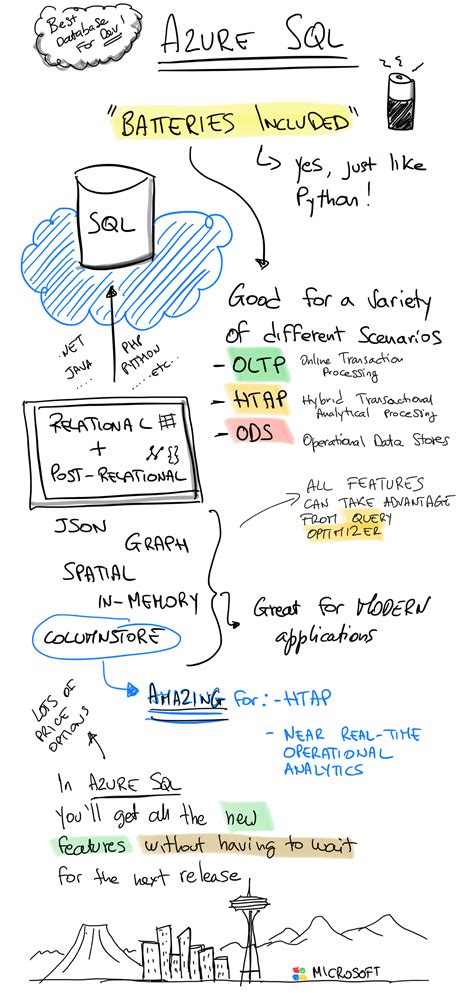 Best
Database
For Dev!
AZURE SQL
"BATTERIES INCLUDED"
Yes, just like
Python!
SQL
Good for a variety
of different scenarios
- OLTP Online Transaction
Processing
- HTAP Hybrid Transactional
Analytical Processing
- ODS Operational Data Stores
.NET
JAVA
.....
PHP
PYTHON
.....etc...
RELATIONAL
+
POST-RELATIONAL
{}
JSON
GRAPH
SPATIAL
IN-MEMORY
COLUMNSTORE
ALL FEATURES
CAN TAKE ADVANTAGE
FROM QUERY
OPTIMIZER
Great for MODERN
applications
AMAZING for: - HTAP
- NEAR REAL-TIME
OPERATIONAL
ANALYTICS
LOTS OF
PRICE
OPTIONS
In AZURE SQL
You'll get all the new
features without having to wait
for the next release
MICROSOFT